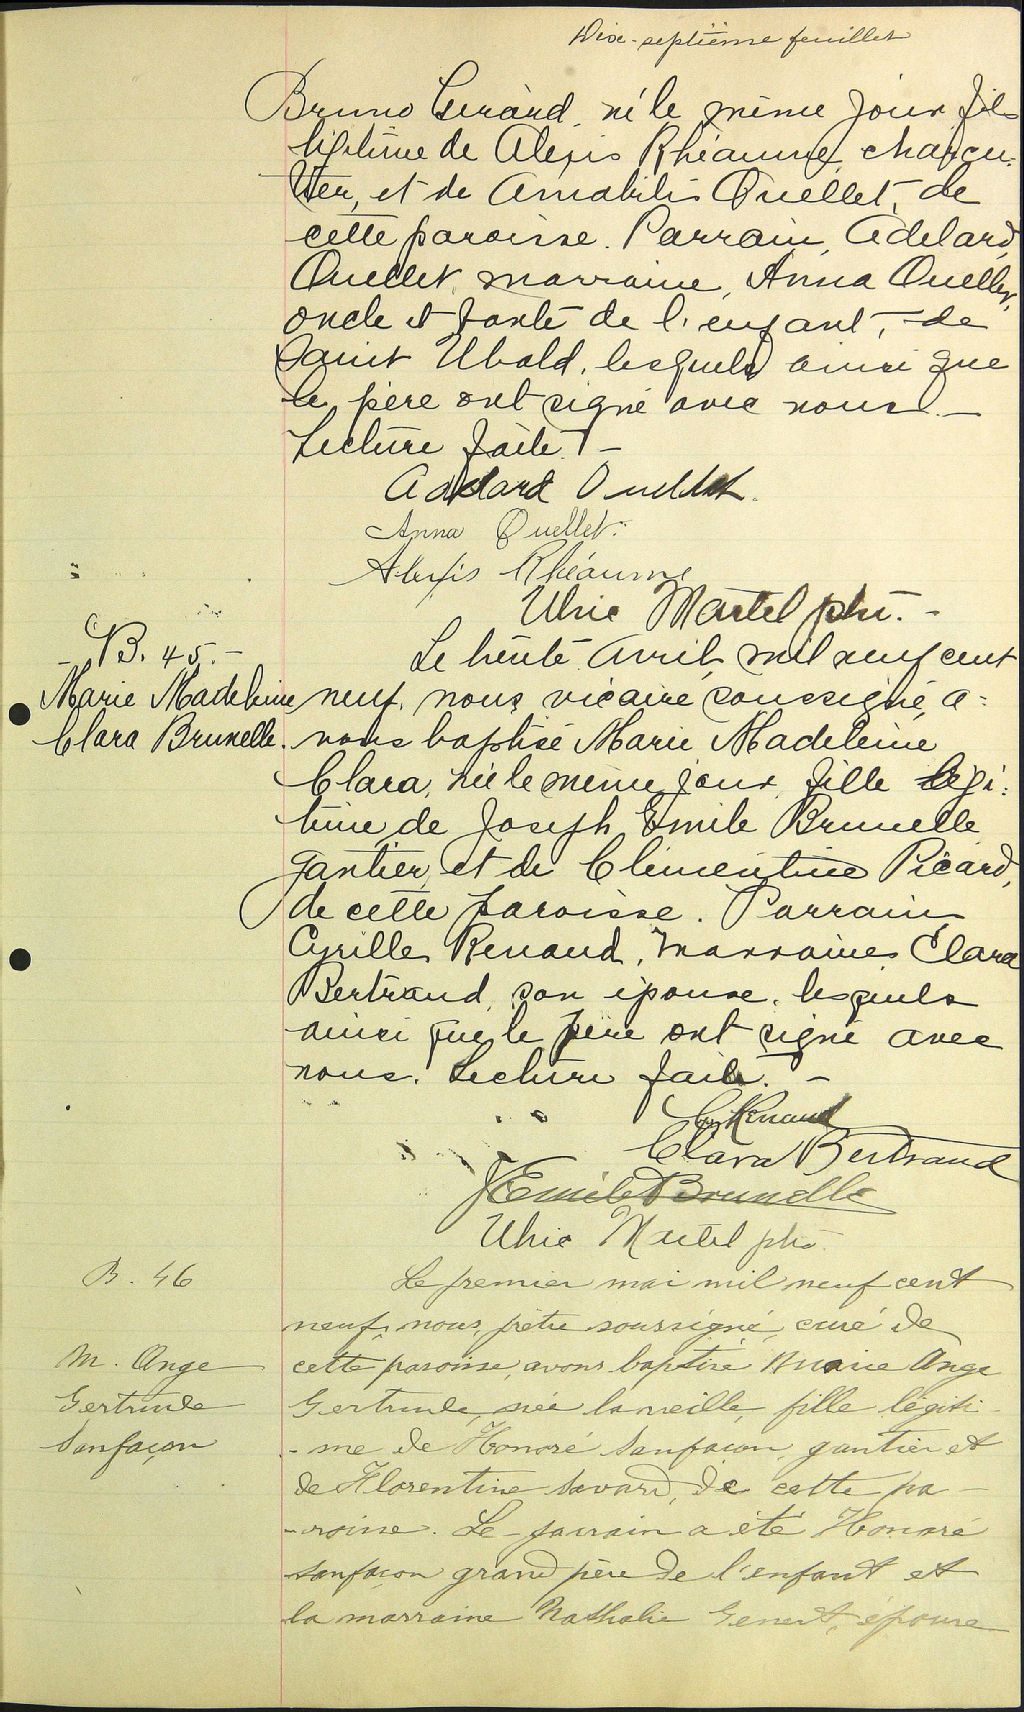 Dix-septième feuillet
Bruno Gérard, né le même jour, fils
légitime de Alexis Rhéaume, charcu-
tier, et de Amabilis Ouellet, de
cette paroisse. Parrain, Adelard
Ouellet, marraine, Anna Ouellet,
oncle et tante de l'enfant, de
Saint Ubald, lesquels ainsi que
le père ont signé avec nous. -
Lecture faite. -
Adelard Ouellet.
Anna Ouellet.
Alexis Rhéaume
Ulric Martel ptre. -
B. 45. -
Marie Madeleine
Clara Brunelle.
Le trente Avril, mil neuf cent
neuf, nous vicaire soussigné, a-
vons baptisé Marie Madeleine
Clara, née le même jour, fille légi-
time de Joseph Emile Brunelle
gantier, et de Clémentine Picard,
de cette paroisse. Parrain
Cyrille Renaud, marraine, Clara
Bertrand, son épouse, lesquels
ainsi que le père ont signé avec
nous. Lecture faite. -
Cy Renaud
Clara Bertrand
J Emile Brunelle
Ulric Martel ptre
B. 46
M. Ange
Gertrude
Sanfaçon
Le premier mai mil neuf cent
neuf, nous, prêtre soussigné, curé de
cette paroisse, avons baptisé Marie Ange
Gertrude, née la veille, fille légiti-
-me de Honoré Sanfaçon, gantier et
de Florentine Savard, de cette pa-
-roisse. Le parrain a été Honoré
Sanfaçon grand père de l'enfant et
la marraine Nathalie Genest, épouse